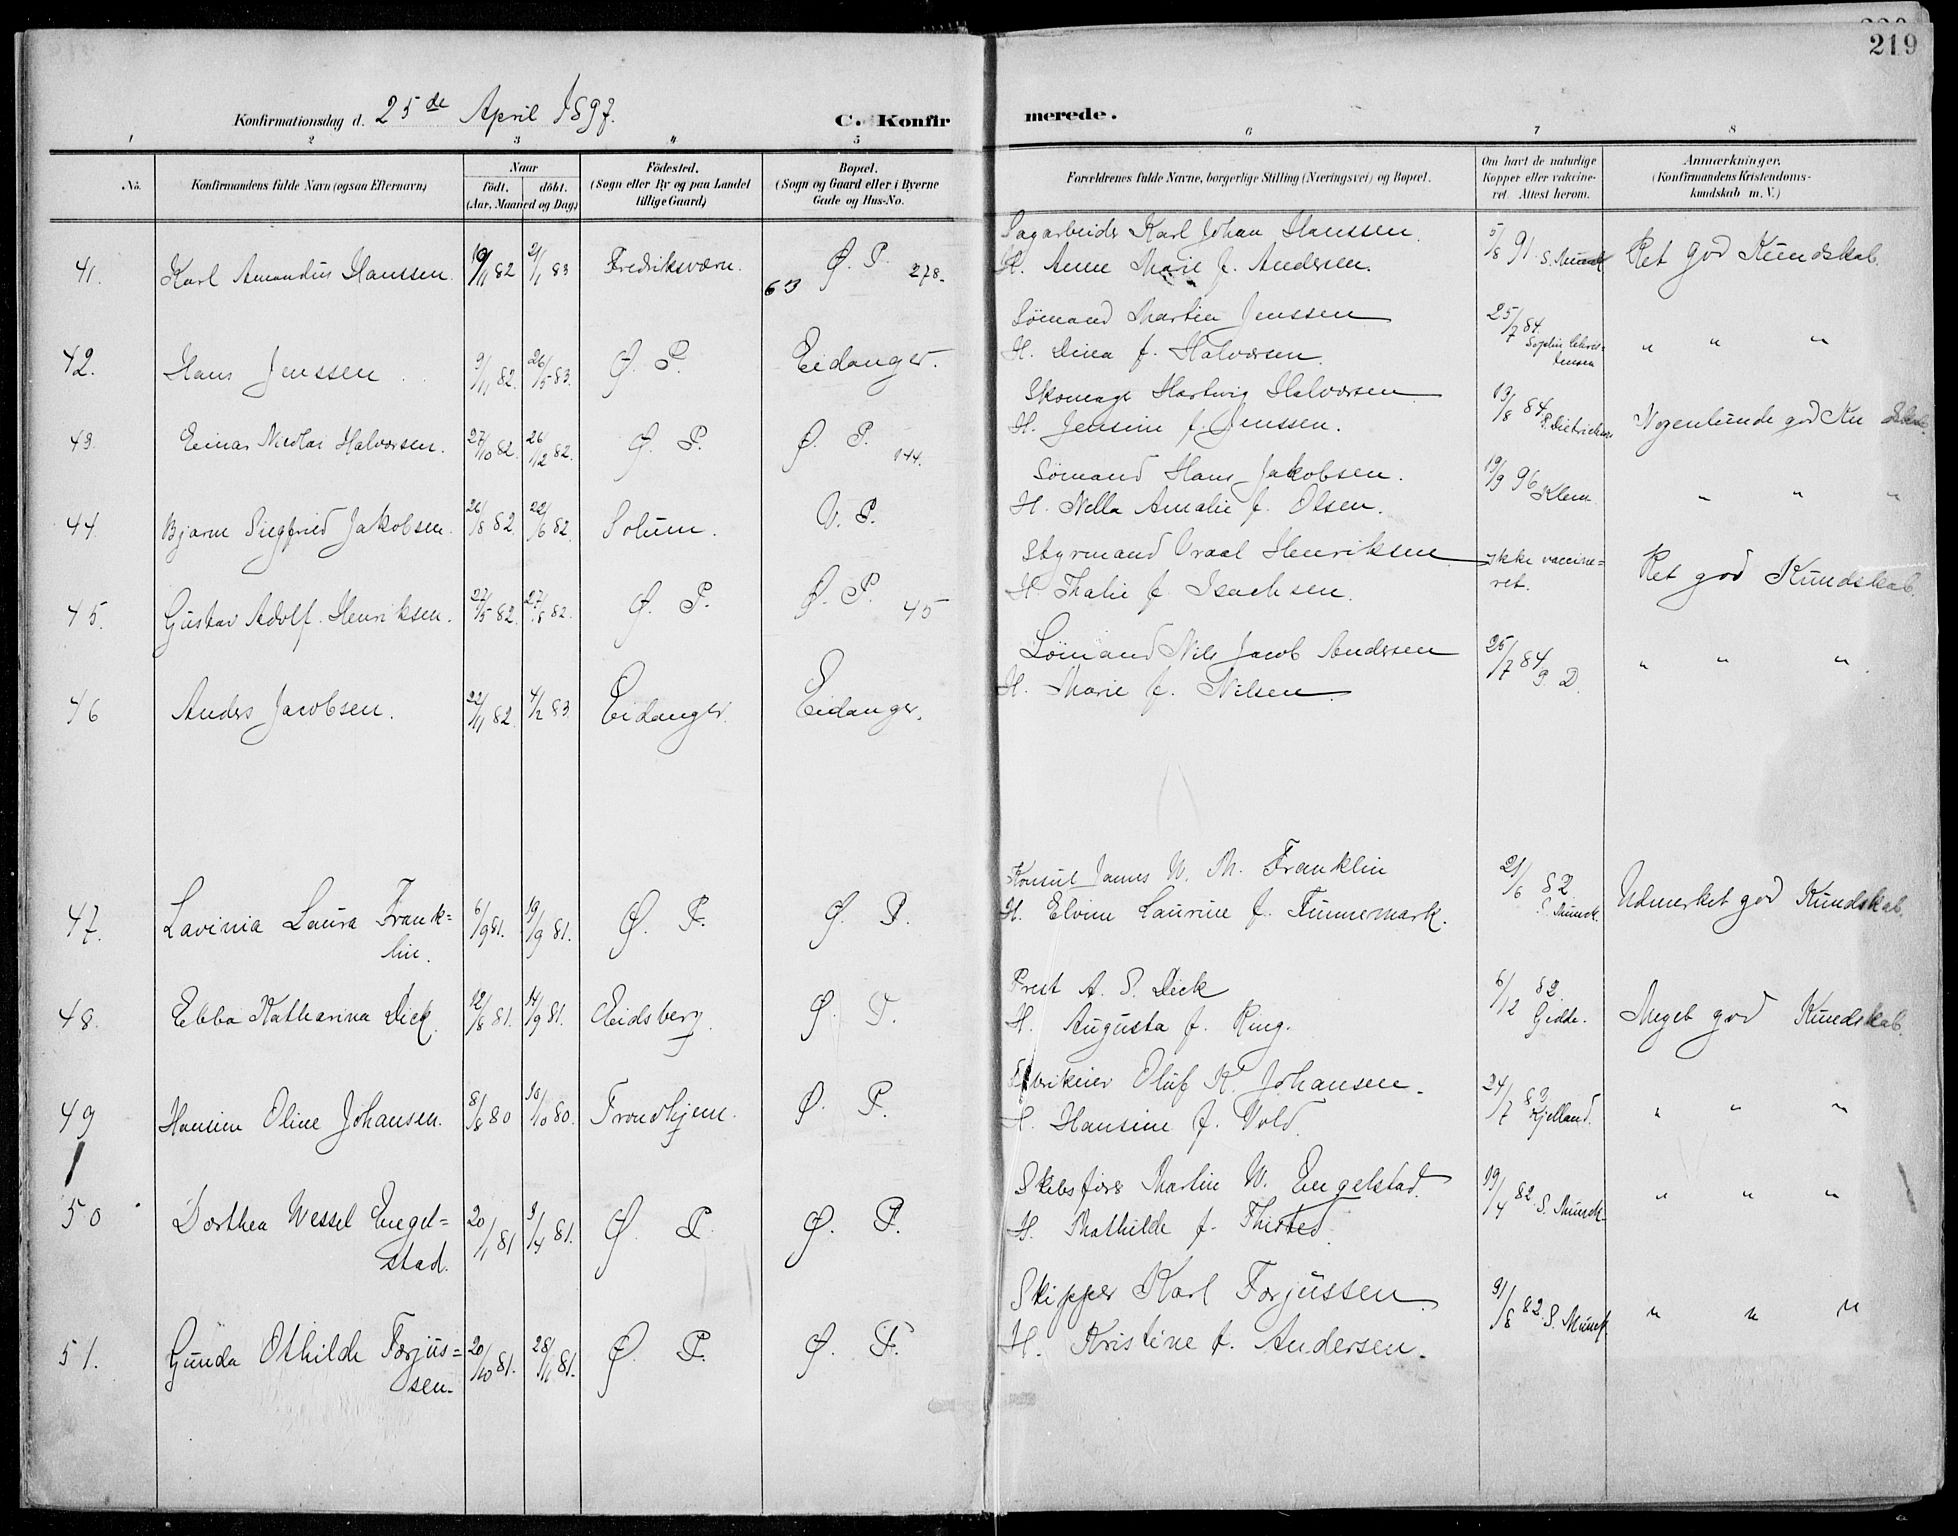 219
Konfirmationsdag d. 25de April 1897.
C. Konfirmerede.
1 2 3 4 5 6 7 8
No.
Konfirmandens fulde Navn (ogsaa Efternavn)
Naar
födt. döbt.
(Aar, Maaned og Dag)
Födested.
(Sogn eller By og paa Landet
tillige Gaard)
Bopæl.
(Sogn og Gaard eller i Byerne
Gade og Hus-No.
Forældrenes fulde Navne, borgerlige Stilling (Næringsvei) og Bopæl.
Om havt de naturlige
Kopper eller vakcine-
ret. Attest herom.
Anmærkninger.
(Konfirmandens Kristendoms-
kundskab m. V.)
41. Karl Amandus Hanssen. 19/11 82 21/1 83 Fredriksværn. 63 Ø. P. 278.
Sagarbeider Karl Johan Hanssen.
H. Anne Marie f. Andersen.
5/8 91. S. Munck Ret god Kundskab.
42. Hans Jenssen 9/11 82. 26/5 83. Ø. P. Eidanger.
Sömand Martin Jenssen
H. Dina f. Halvorsen.
25/7 84. Sophie Chris=
tensen " " "
43 Einar Nicolai Halvorsen. 27/10 82. 26/12 82. Ø. P. Ø. P. 144.
Skomager Hartvig Halvorsen
H. Jensine f. Jenssen.
19/8 84. P. Dietrichson Nogenlunde god Kundskab.
44. Bjarne Siegfried Jakobsen. 26/8 82 22/6 82. Solum. V. P.
Sömand Hans Jakobsen.
H. Nella Amalie f. Olsen.
19/9 96 Klem " " "
45. Gustav Adolf Henriksen. 27/5 82. 27/8 82. Ø. P. Ø. P. 45
Styrmand Vraal Henriksen
H. Thalie f. Isachsen.
Ikke vaccine=
ret. Ret god Kundskab.
46 Anders Jacobsen. 22/11 82. 4/2 83 Eidanger. Eidanger.
Sömand Nils Jacob Andersen
H. Marie f. Nilsen
25/7 84 P. D. " " "
47. Lavinia Laura Frank=
lin. 6/9 81. 19/9 81. Ø. P. Ø. P.
Konsul James W. M. Franklin
H. Elvine Laurine f. Funnemark.
21/6 82 S. Munck. Udmerket god Kundskab.
48. Ebba Katharina Dick. 12/8 81. 14/9 81. Eidsberg. Ø. P.
Prest A. S. Dick
H. Augusta f. Ring.
6/12 82. Gedde. Meget god Kundskab.
49 Hansine Oline Johansen. 8/8 80 10/10 80. Trondhjem. Ø. P.
Fabrikeier Oluf K. Johansen.
H. Hansine f. Vold.
24/7 83 Kjelland. " " "
50 Dorthea Wessel Engel=
stad. 20/1 81 3/4 81. Ø P. Ø. P.
Skibsförer Martin W. Engelstad.
H. Mathilde f. Thisted.
19/4 82. S. Munck. " " "
51. Gunda Othilde Forjus=
sen. 20/10 81. 28/11 81. Ø. P. Ø. P.
Skipper Karl Forjussen.
H. Kristine f. Andersen.
31/8 82. S. Munck " " "